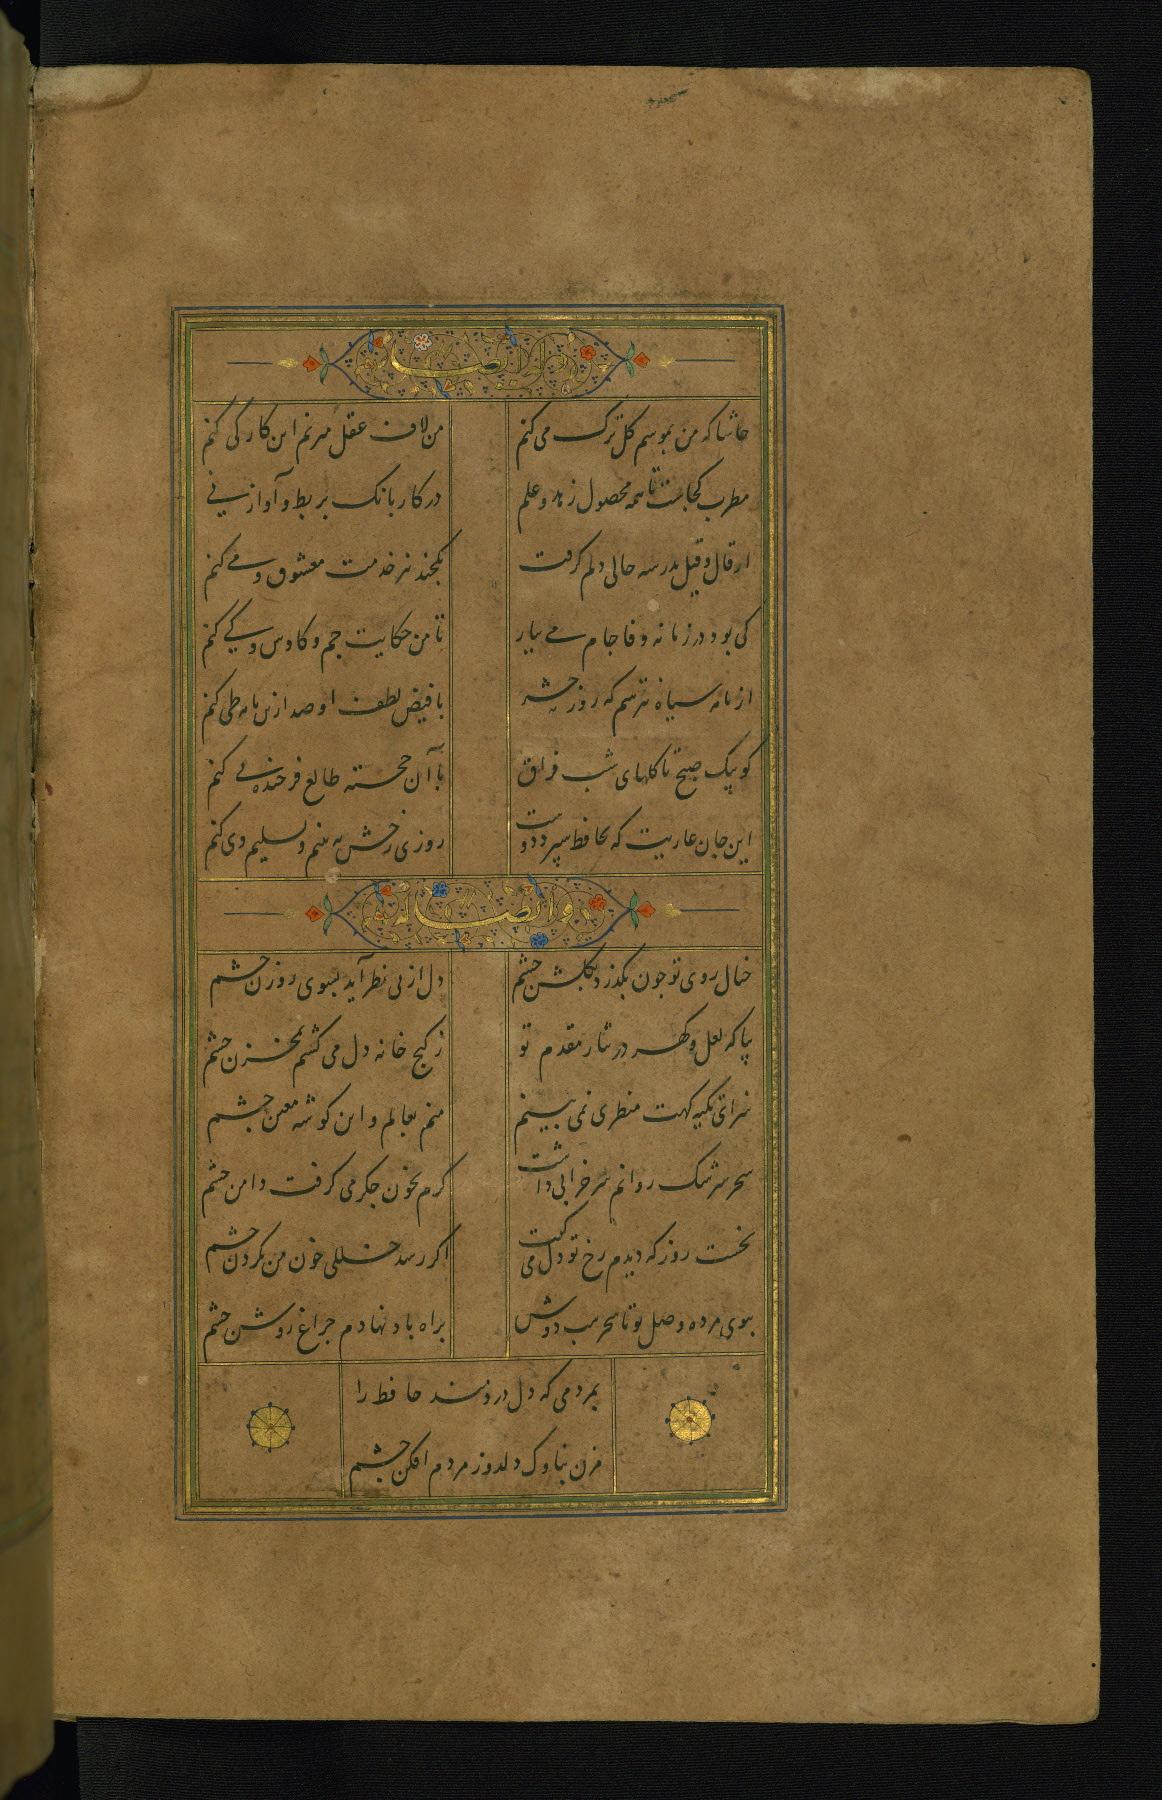 وله ایضا
حاشا که من بموسم کل ترک می کنم
من لاف عقل میزنم این کار کی کنم
مطرب کجاست تا همه محصول زهد و علم
در کار بانک بربط و آواز نی
از قال و قیل مدرسه حالی دلم کرفت
یکچند نیز خدمت معشوق و می کنم
کی بود در زمانه وفا جام می بیار
تا من حکایت جم و کاوس و کی کنم
از نامه سیاه نترسم که روز حشر
با فیض لطف او صد ازین نامه طی کنم
کو پیک صبح تا کلهای شب فراق
با آن خجسته طالع فرخنده پی کنم
این جان عاریت که بحافظ سپرد دوست
روزی رخش به بینم و تسلیم وی کنم
وله ایضا
خیال روی تو چون بکذرد بکلشن چشم
دل از پی نظر آید بسوی روزن چشم
بیا که لعل و کهر در نثار مقدم تو
ز کنج خانه دل می کشم بمخزن چشم
سزای تکیه کهت منظری نمی بینم
منم بعالم و این کوشه معین چشم
سحر سرشک روانم سر خرابی داشت
کرم بخون جکر می کرفت دامن چشم
نخست روز که دیدم رخ تو دل می کفت
اکر رسد خللی خون من بکردن چشم
ببوی مژده وصل تو تا سحر شب دوش
براه باد نهادم چراغ روشن چشم
بمردمی که دل دردمند حافظ را
مزن بناوک دلدوز مردم افکن چشم